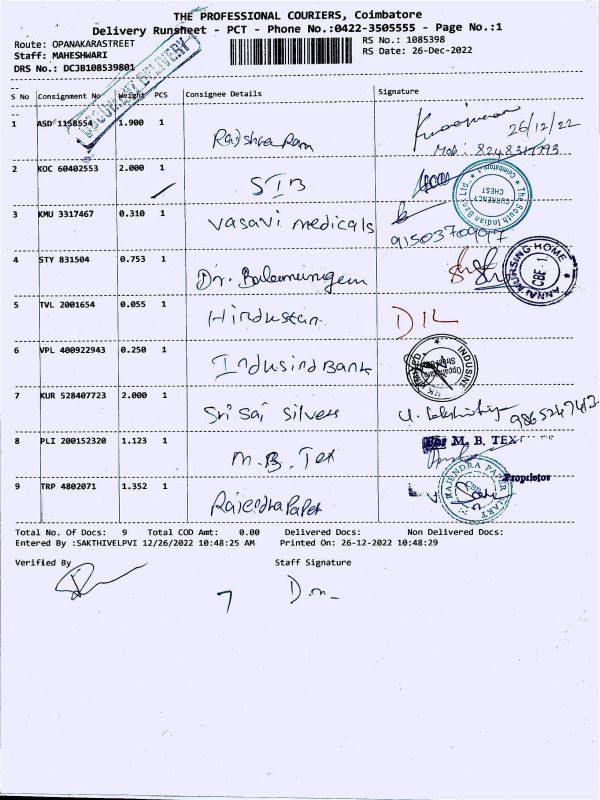 THE PROFESSIONAL COURIERS, Coimbatore
Delivery Runsheet - PCT - Phone No.:0422-3505555 - Page No.:1
Route: OPANAKARASTREET RS No.: 1085398
Staff: MAHESHWARI RS Date: 26-Dec-2022
DRS No.: DCJB108539801
DOCUMENT DELIVERY
S No Consignment No Weight PCS Consignee Details Signature
1 ASD 1158554 1.900 1 Rajshree Ram 26/12/22
Mob: 8248317793
2 KOC 60402553 2.000 1 SIB The South Indian Bank Ltd. CURRENCY CHEST Coimbatore
3 KMU 3317467 0.310 1 Vasavi medicals
9150370907
4 STY 831504 0.753 1 Dr. Balamurugan ANNAI NURSING HOME CBE-1
5 TVL 2001654 0.055 1 Hindustan DIL
6 VPL 400922943 0.250 1 Indusind Bank INDUSIND
7 KUR 528407723 2.000 1 Sri Sai Silvers 9865247412
8 PLI 200152320 1.123 1 M.B. Tex For M. B. TEX
Proprietor
9 TRP 4802071 1.352 1 Rajendra Paper RAJENDRA PAPER MART CBE
Total No. Of Docs: 9 Total COD Amt: 0.00 Delivered Docs: Non Delivered Docs:
Entered By :SAKTHIVELPVI 12/26/2022 10:48:25 AM Printed On: 26-12-2022 10:48:29
Verified By Staff Signature
7 D.m